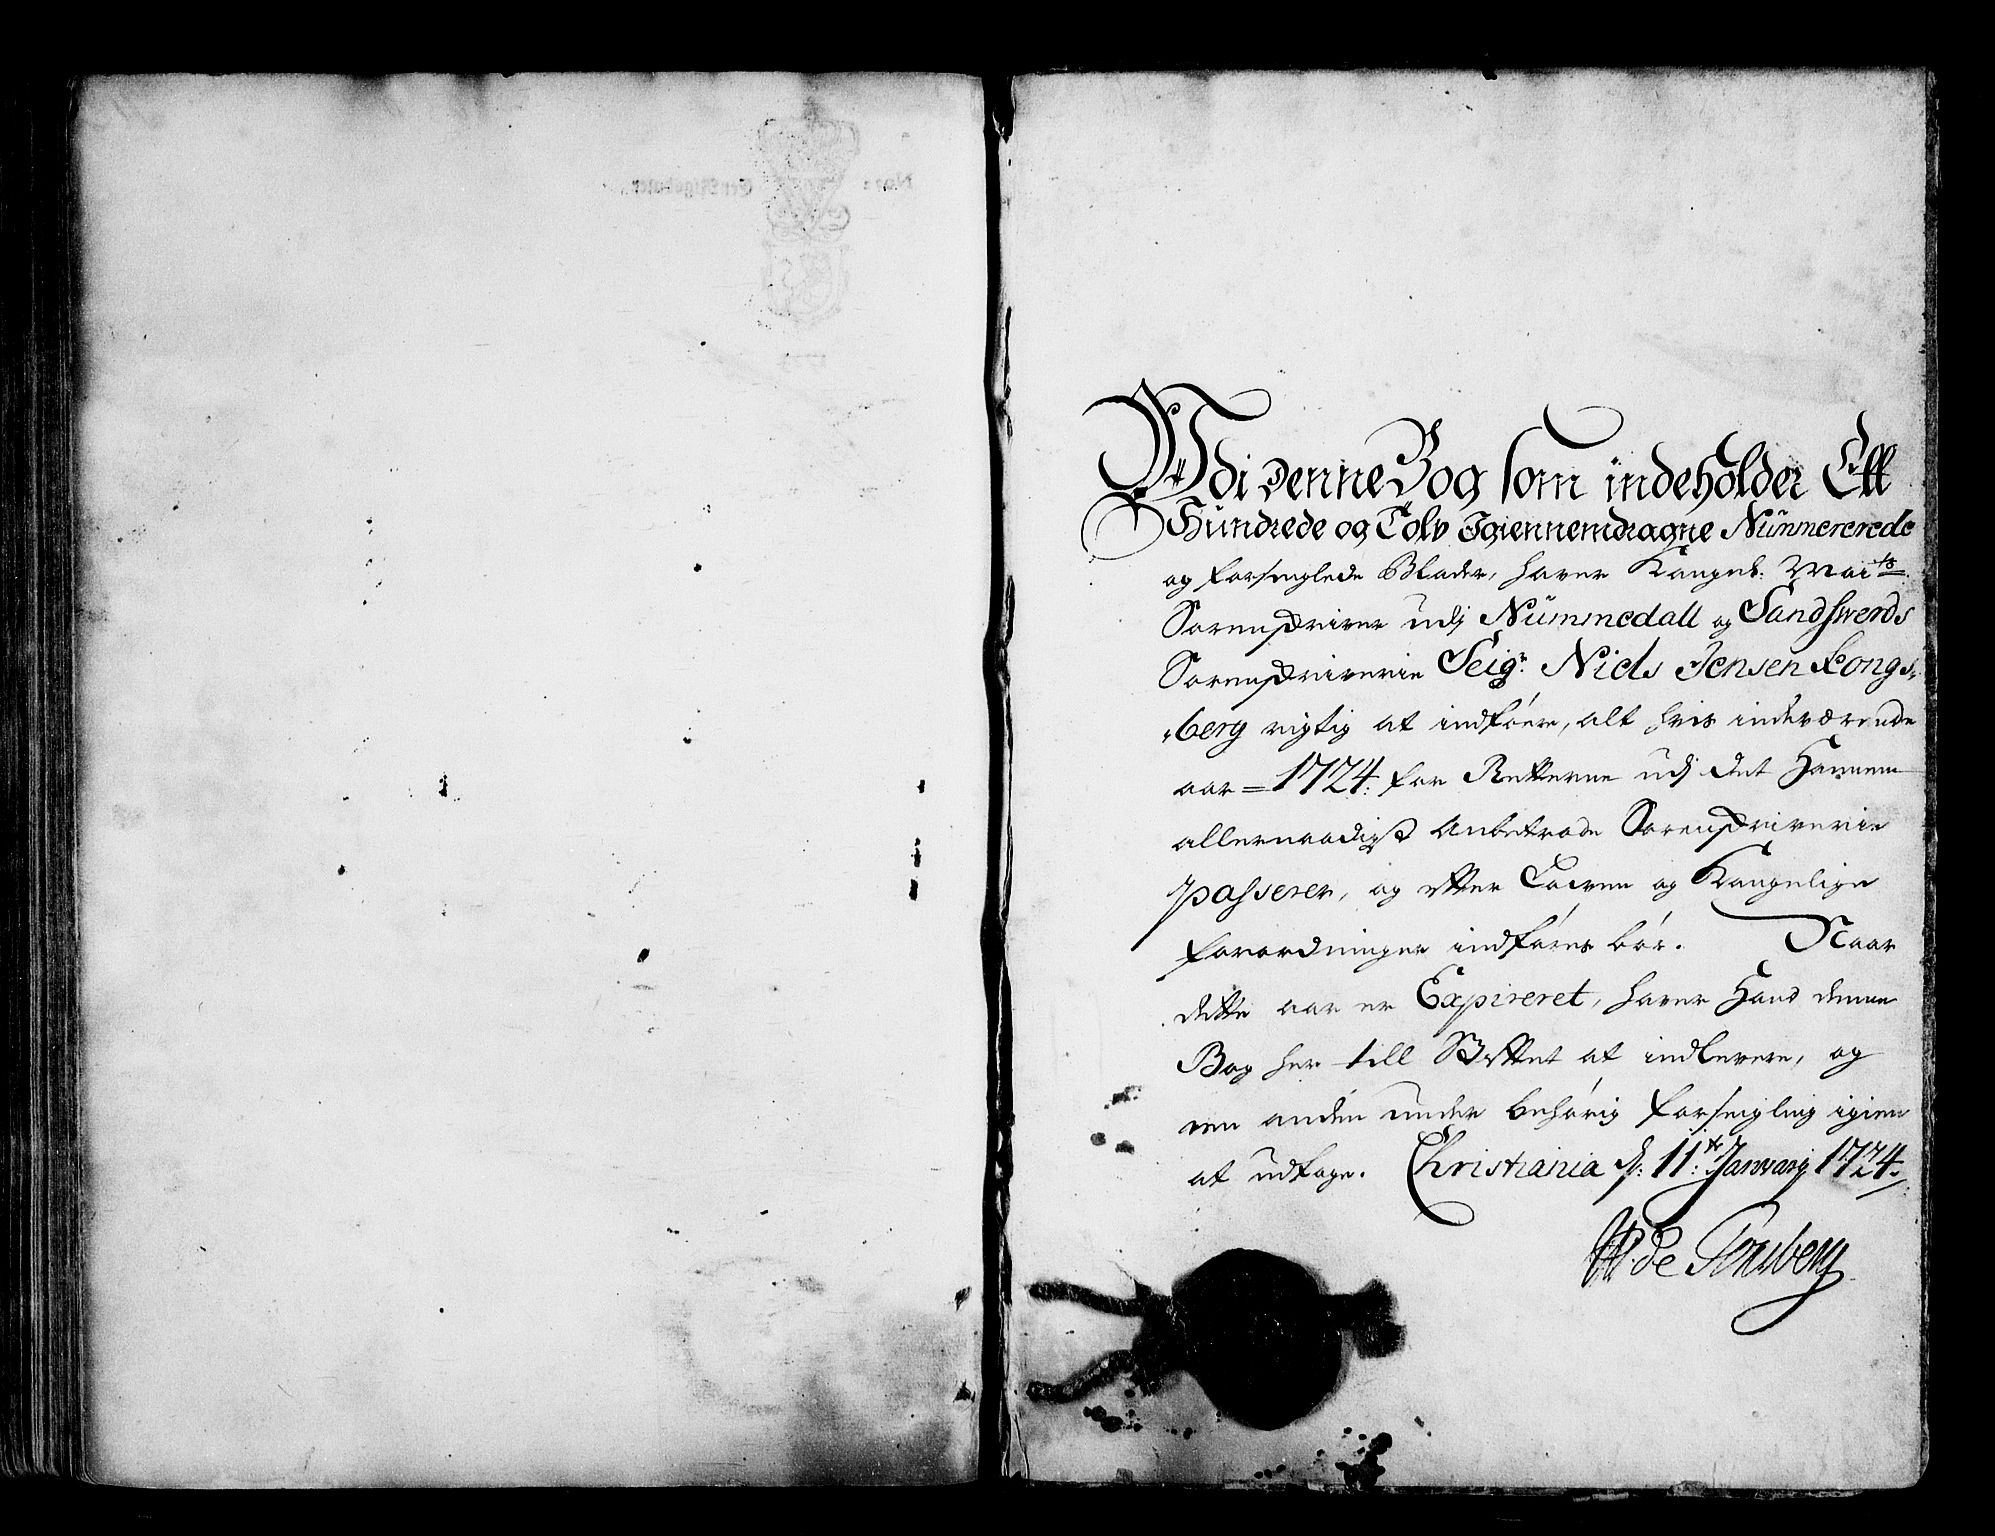 Udi denne Bog som indeholder Ett
Hundrede og Tolv Igiennemdragne Nümmererede
og forseiglede Blader, haver Kongel: Mai.ts
Sorenskriver udj Nümmedall og Sandswerds
Sorenskriverie Seig.r Niels Jensen Kongs-
berg rigtig at indføre, alt hvis indeværende
aar = 1724. for Retterne udj det Hannem
allernaadigst Anbetroede Sorenskriverie
passerer, og efter Lowen og Kongelige
forordninger indføres bør. Naar
dette aar er Expireret, haver Hand denne
Bog her till Stiftet at indlevere, og
een anden under behørig forseigling igien
at udtage. Christiania d: 11.te Januarij 1724.
W. de Tonsberg